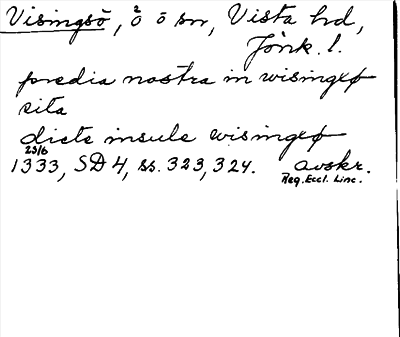 Visingsö, 2 ö ö sn, Vista hd,
Jönk. l.
predia nostra in wisingxø
sita
dicte insule wisingxø
23/6
1333, SD 4, ss. 323, 324. avskr.
Reg. Eccl. Linc.